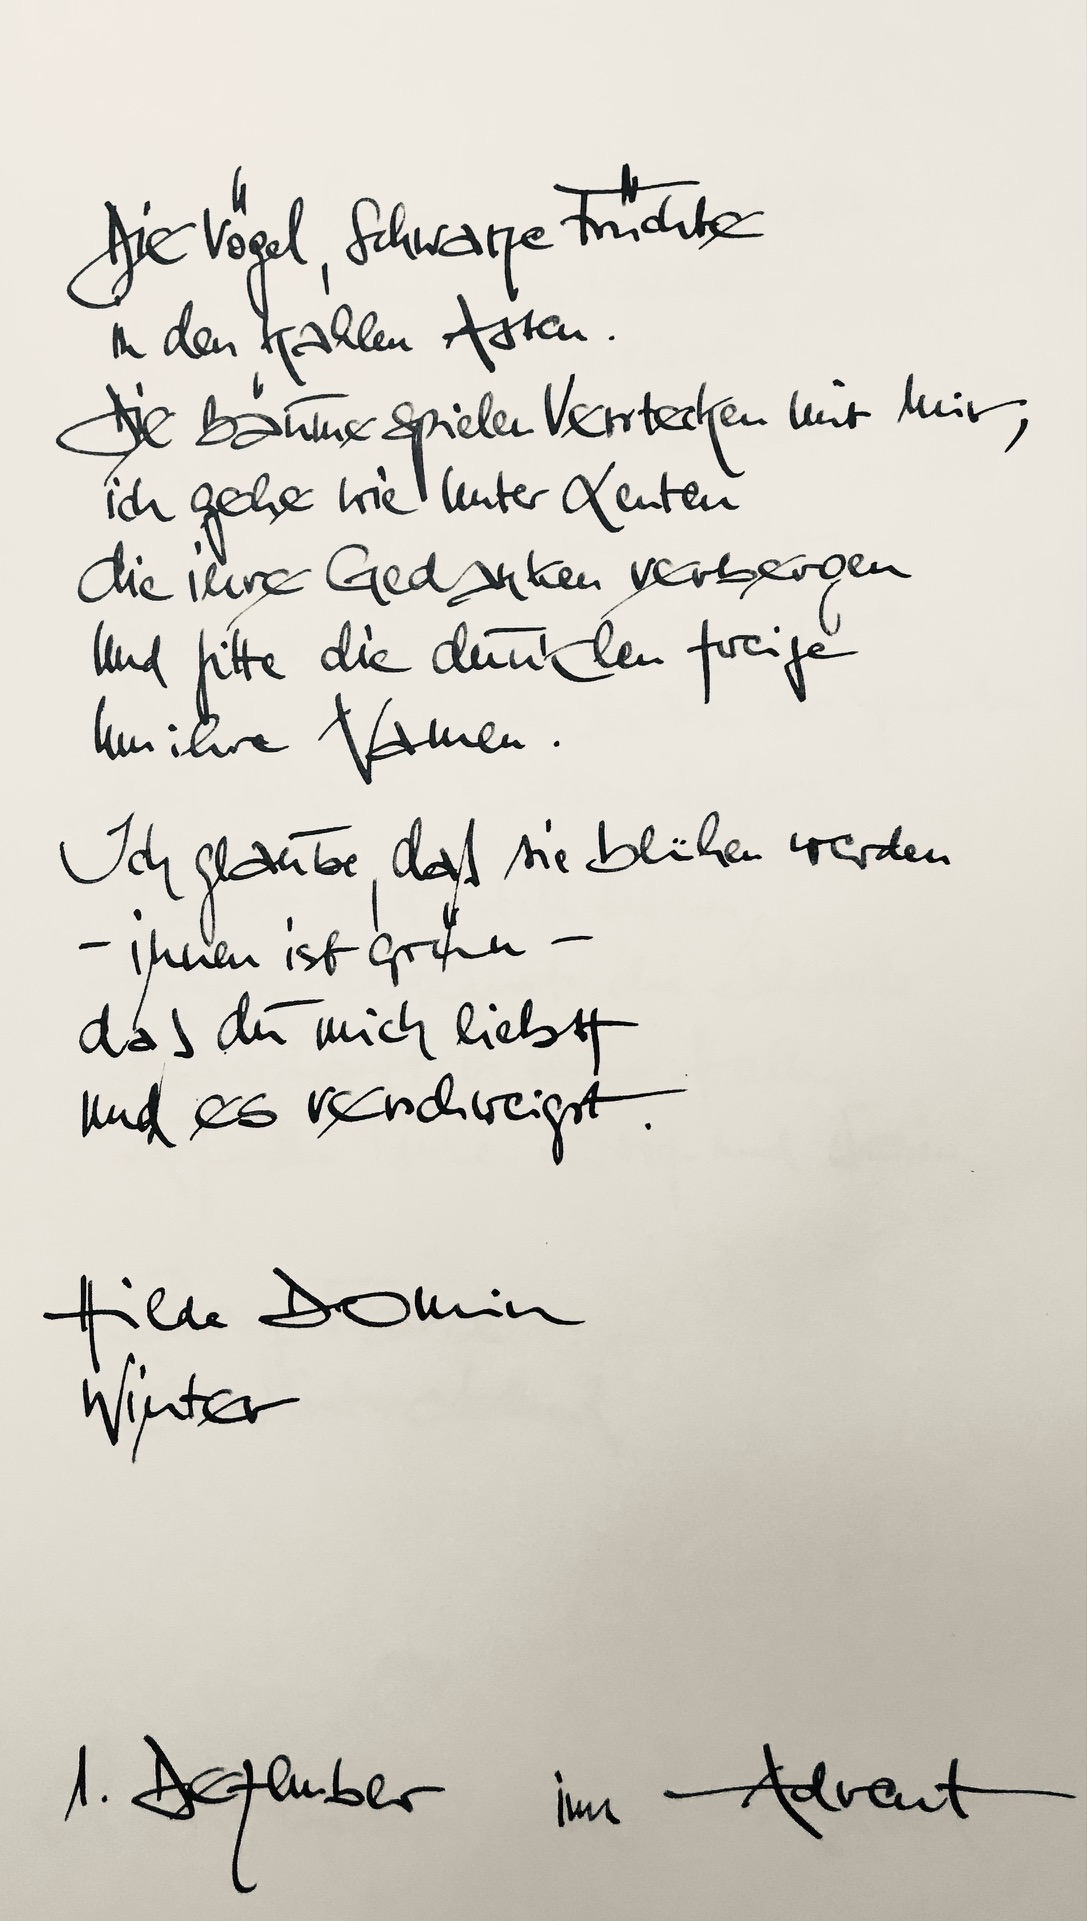 Die Vögel, Schwarze Früchte
in den kahlen Ästen.
Die Bäume spielen Verstecken mit mir,
ich gehe wie unter Leuten
die ihre Gedanken verbergen
und bitte die dunklen Zweige
um ihre Namen.
Ich glaube, daß sie blühen werden
- innen ist grün -
daß du mich liebst
und es verschweigst.
Hilde Domin
Winter
1. Dezember im Advent